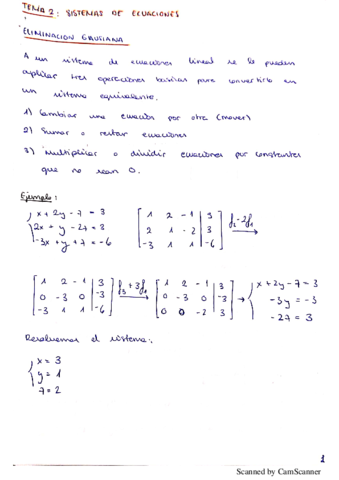 TEMA 2: SISTEMAS DE ECUACIONES
ELIMINACION GAUSIANA
A un sistema de ecuaciones lineal se le pueden
aplicar tres operaciones basicas para convertirlo en
un sistema equivalente.
1) Cambiar una ecuación por otra (mover)
2) Sumar o restar ecuaciones
3) Multiplicar o dividir ecuaciones por constantes
que no sean 0.
Ejemplo:
x + 2y - z = 3
2x + y - 2z = 3
-3x + y + z = -6
1 2 -1 | 3
2 1 -2 | 3
-3 1 1 | -6
f2-2f1
1 2 -1 | 3
0 -3 0 | -3
-3 1 1 | -6
f3+3f1
1 2 -1 | 3
0 -3 0 | -3
0 0 -2 | 3
x + 2y - z = 3
-3y = -3
-2z = 3
Resolvemos el sistema:
x = 3
y = 1
z = 2
1
Scanned by CamScanner